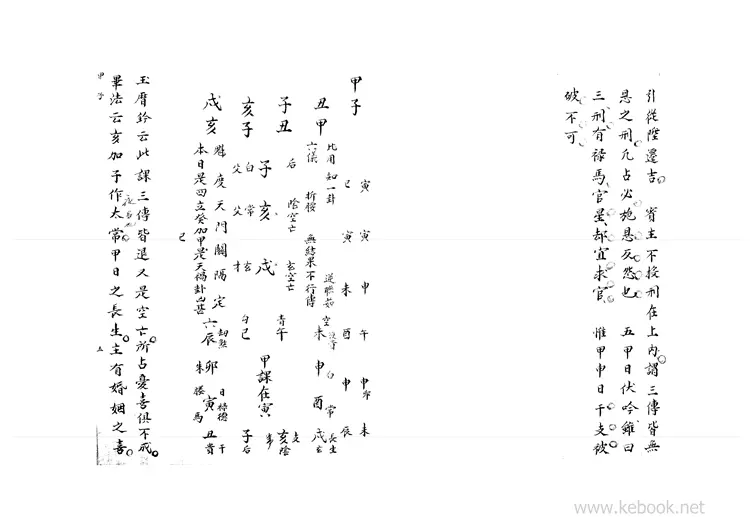 引從陞遷吉 賓主不投刑在上內謂三傳皆無
恩之刑凡占必施恩反怨也 五甲日伏吟雖曰
三刑有祿馬官星却宜求官 惟甲申日干支被
破不可
甲子
丑甲
子丑
亥子
戌亥
寅 寅 申 午 申 未
巳 寅 未 酉 申 辰
比用知一卦
六儀 折腰 無結果不行傳
后 陰空亡 玄空亡
子 亥 戌
父 父 才
白 常 玄
青午
勾巳
甲課在寅
空未 白申 常酉 玄戌
長生
陰亥
后子
貴丑
寅 日祿德
朱卯
六辰
腰馬
度天門關隔定
本日是四立癸加甲是天禍卦凶甚
玉曆鈐云此課三傳皆退又是空亡所占憂喜俱不成
畢法云亥加子作太常甲日之長生主有婚姻之喜
甲子
www.kebook.net